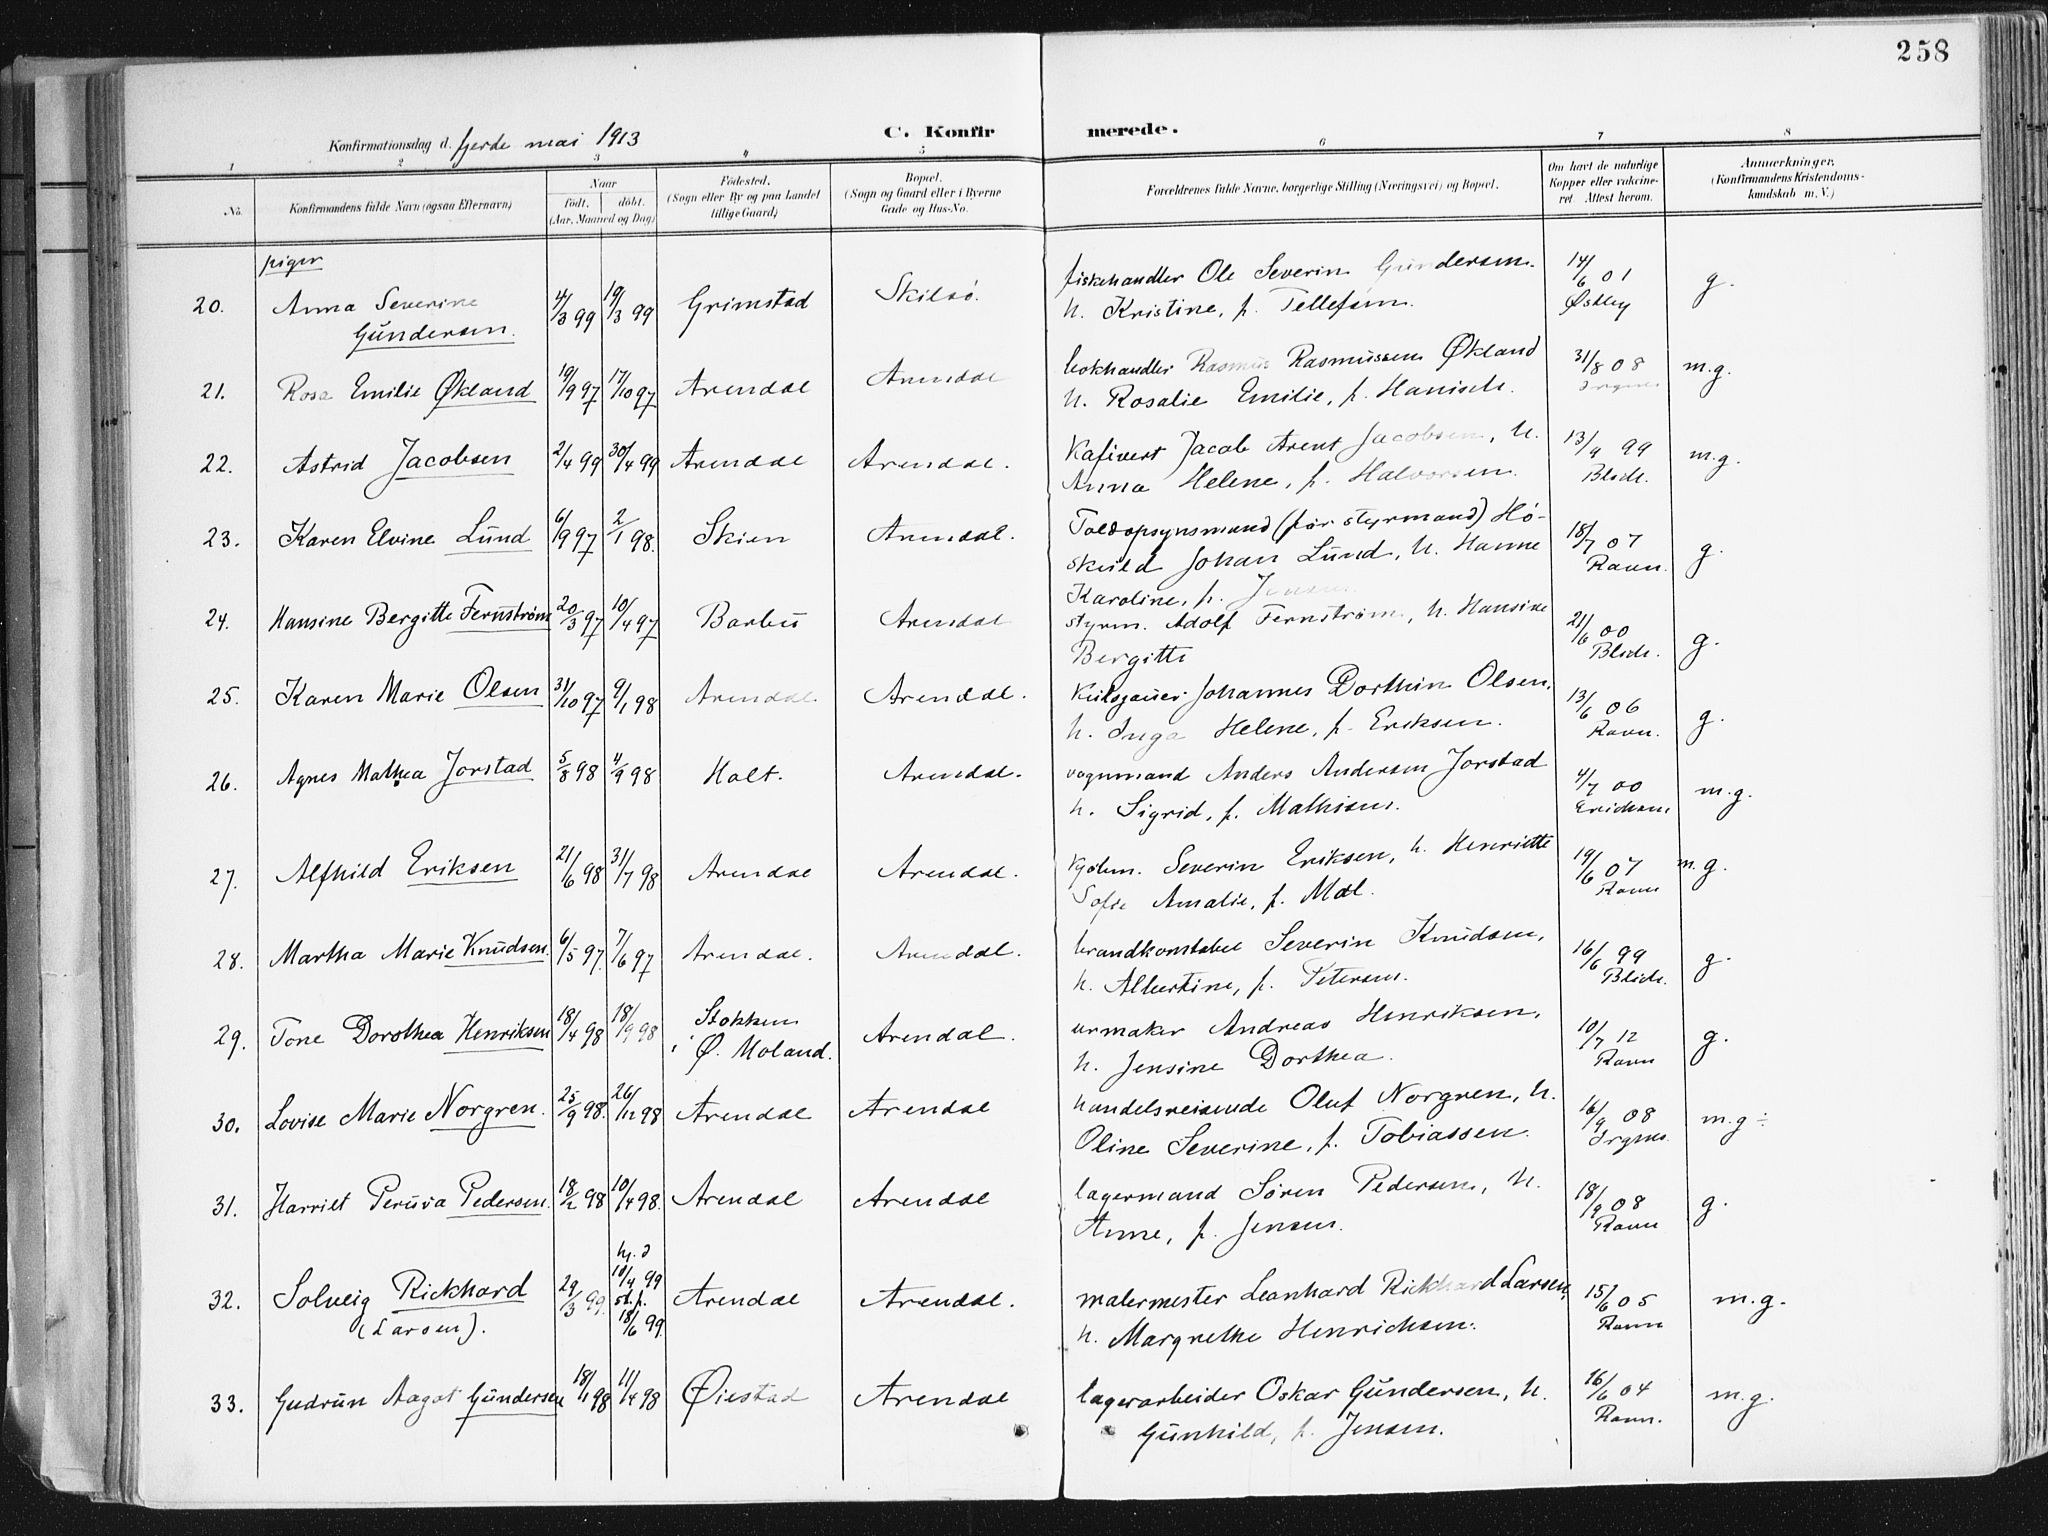 258
Konfirmationsdag d. fjerde mai 1913
C. Konfirmerede.
1 2 3 4 5 6 7 8
No.
Konfirmandens fulde Navn (ogsaa Efternavn)
Naar
født. døbt.
(Aar, Maaned og Dag)
Fødested.
(Sogn eller By og paa Landet
tillige Gaard)
Bopæl.
(Sogn og Gaard eller i Byerne
Gade og Hus-No.
Forældrenes fulde Navne, borgerlige Stilling (Næringsvei) og Bopæl.
Om havt de naturlige
Kopper eller vakcine-
ret Attest herom.
Anmærkninger.
(Konfirmandens Kristendoms-
kundskab m. V.)
piger
20. Anna Severine Gundersen. 4/3 99 19/3 99 Grimstad Skilsø. fiskehandler Ole Severin Gundersen. 14/6 01 g.
h. Kristine, f. Tellefsen. Østby
21. Rosa Emilie Økland 19/9 97 17/10 97 Arendal Arendal bokhandler Rasmus Rasmussen Økland 31/8 08 m.g.
h. Rosalie Emilie, f. Hanisch.
22. Astrid Jacobsen 2/4 99 30/4 99 Arendal Arendal. Kafivert Jacob Arent Jacobsen, h. 13/9 99 m.g.
Anna Helene, f. Halvorsen. Blich.
23. Karen Elvine Lund 6/9 97 2/1 98. Skien Arendal. Toldopsynsmand (før styrmand) Hø- 18/7 07 g.
skuld Johan Lund, h. Hanne Ravn.
Karoline, f. Jensen
24. Hansine Bergitte Fernstrøm 20/3 97 10/4 97 Barbu Arendal styrm. Adolf Fernstrøm, h. Hansine 21/6 00 g.
Bergitte Blich.
25. Karen Marie Olsen 31/10 97 9/1 98 Arendal. Arendal. Johannes Dorthin Olsen, 13/6 06 g.
h. Inga Helene, f. Eriksen. Ravn.
26. Agnes Mathea Jorstad 5/8 98 4/9 98 Holt. Arendal. vognmand Anders Andersen Jorstad 4/7 00 m.g.
h. Sigrid, f. Mathisen. Erichsen
27. Alfhild Eriksen 21/6 98 31/7 98 Arendal Arendal. kjøbm. Severin Eriksen, h. Henriette 19/6 07 m.g.
Sofie Amalie, f. Møl. Ravn
28. Martha Marie Knudsen. 6/5 97. 7/6 97 Arendal. Arendal. brandkonstabel Severin Knudsen, 16/6 99 g.
h. Albertine, f. Petersen. Blich.
29. Tone Dorothea Henriksen 18/4 98 18/9 98 Stokken i Ø. Moland. Arendal. urmaker Andreas Henriksen, 10/7 12 g.
h. Jensine Dorthea. Ravn
30. Lovise Marie Norgren. 25/9 98. 26/12 98 Arendal Arendal handelsreisende Oluf Norgren, h. 16/9 08 m.g ÷
Oline Severine, f. Tobiassen.
31. Harriet Peruva Pedersen. 18/2 98 10/4 98. Arendal Arendal lagermand Søren Pedersen, h. 18/9 08 g.
Anne, f. Jensen. Ravn
32. Solveig Rickhard (Larsen). 29/3 99. hj. d 10/4 99 st. f. 18/6 99. Arendal Arendal. malermester Leonhard Rickhard Larsen, 15/6 05 m.g.
h. Margrethe Henrichsen. Ravn
33. Gudrun Aagot Gundersen 18/1 98 11/4 98 Øiestad Arendal lagerarbeider Oskar Gundersen, h. 16/6 04 m.g.
Gunhild, f. Jensen. Ravn.